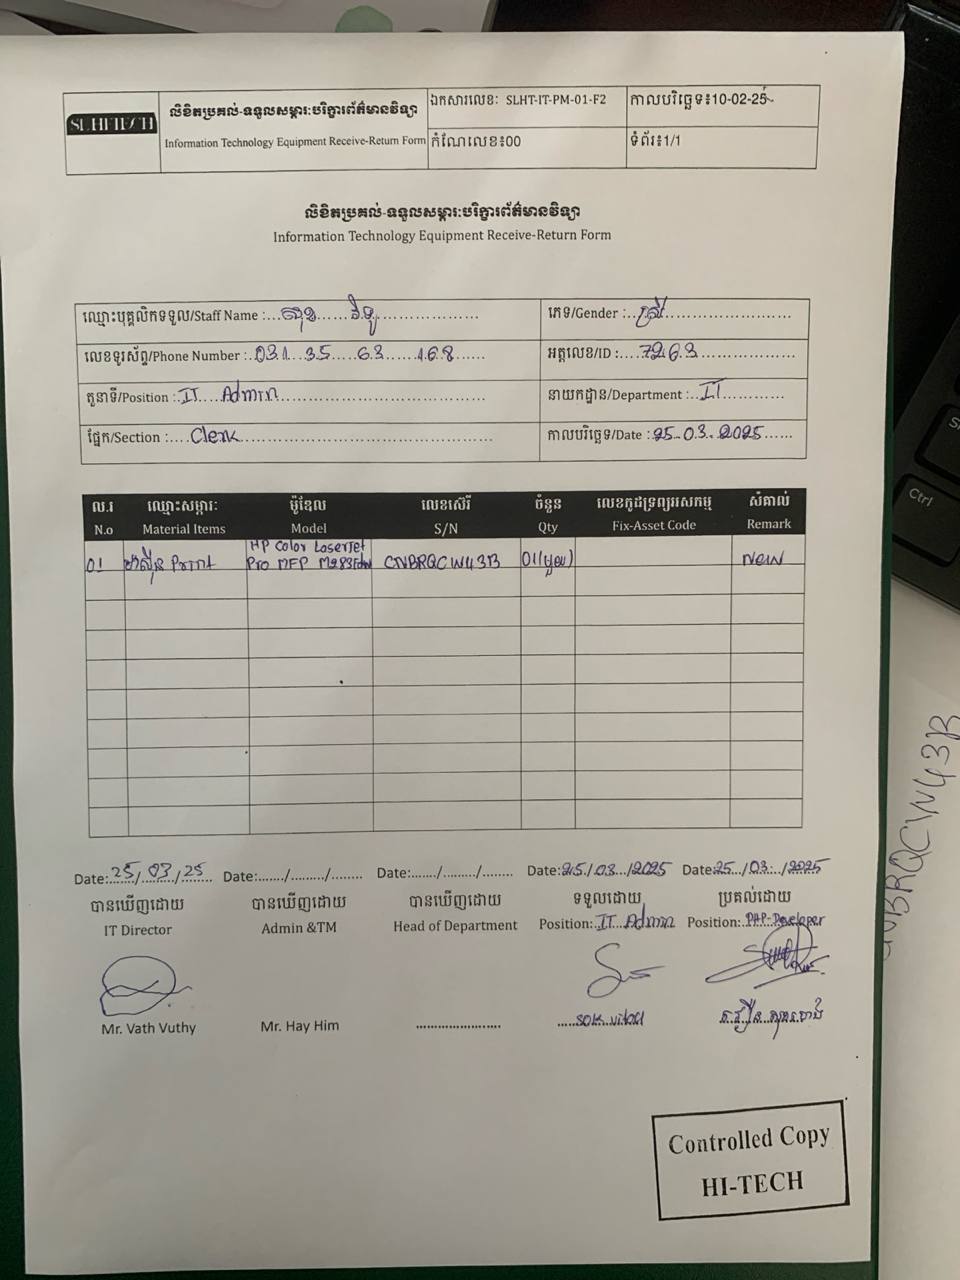 SLHITECH
លិខិតប្រគល់-ទទួលសម្ភារៈបរិក្ខារព័ត៌មានវិទ្យា
Information Technology Equipment Receive-Return Form
ឯកសារលេខៈ SLHT-IT-PM-01-F2
កាលបរិច្ឆេទ៖10-02-25
កំណែលេខ៖00
ទំព័រ៖1/1
លិខិតប្រគល់-ទទួលសម្ភារៈបរិក្ខារព័ត៌មានវិទ្យា
Information Technology Equipment Receive-Return Form
ឈ្មោះបុគ្គលិកទទួល/Staff Name :...សុខ......វិឡូ...................
ភេទ/Gender :...ស្រី........................
លេខទូរស័ព្ទ/Phone Number :..031...35.....63.....168......
អត្តលេខ/ID :....7263...................
តួនាទី/Position :.IT....Admin...............................
នាយកដ្ឋាន/Department :..IT............
ផ្នែក/Section :....Clerk......................................
កាលបរិច្ឆេទ/Date :25..03..2025......
ល.រ ឈ្មោះសម្ភារៈ ម៉ូឌែល លេខស៊េរី ចំនួន លេខកូដទ្រព្យអសកម្ម សំគាល់
N.o Material Items Model S/N Qty Fix-Asset Code Remark
HP Color LaserJet
01 ម៉ាស៊ីន Print Pro MFP M283fdw CNBRQCW43B 01(មួយ) New
Date:25/03/25 Date:......./........./........ Date:......./......../........ Date:25/03.../2025 Date:25.../03.../2025
បានឃើញដោយ បានឃើញដោយ បានឃើញដោយ ទទួលដោយ ប្រគល់ដោយ
IT Director Admin &TM Head of Department Position:.IT Admin Position:.PHP-Developer
Mr. Vath Vuthy Mr. Hay Him ........................ .....SOK
Controlled Copy
HI-TECH
CNBRQCW43B